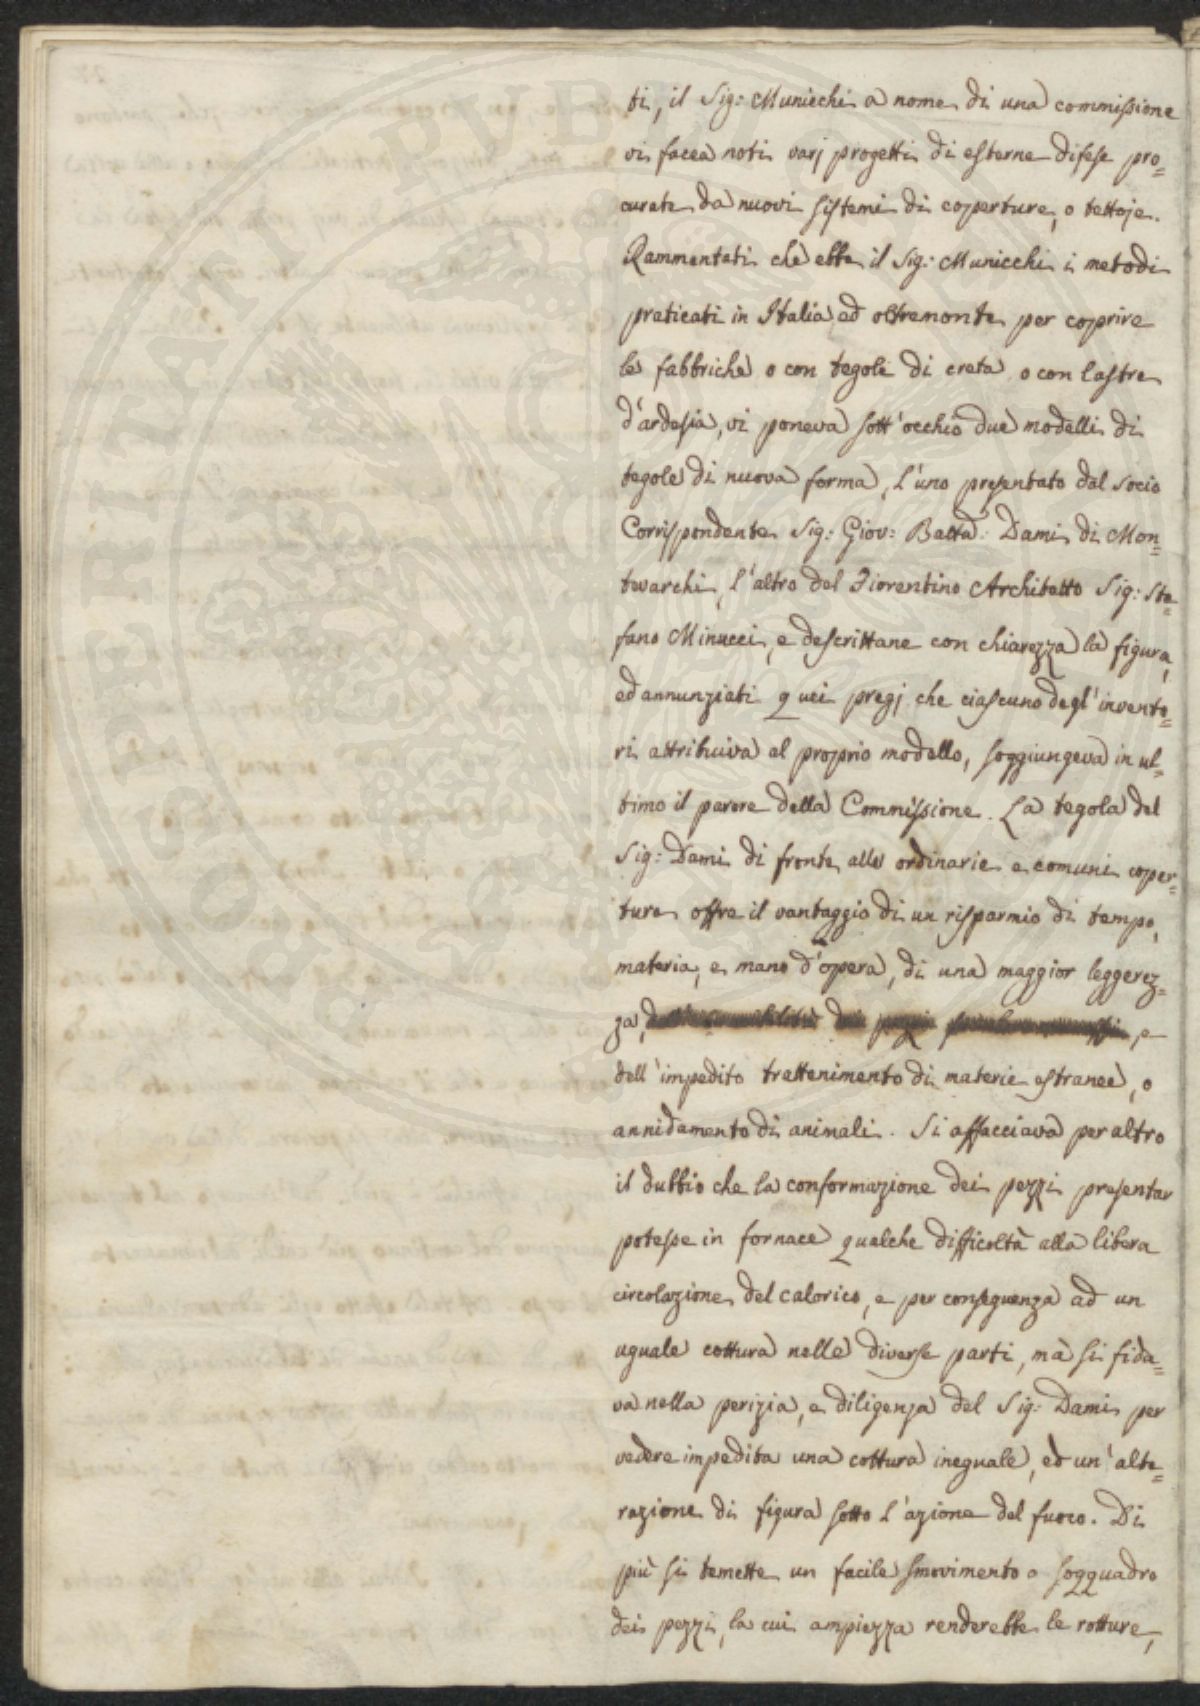 ti, il Sig: Municchi a nome di una commissione
vi facea noti varj progetti di esterne difese pro=
curate da nuovi sistemi di coperture, o tettoje.
Rammentati che ebbe il Sig: Municchi i metodi
praticati in Italia ad oltremonte per coprire
le fabbriche o con tegole di creta o con lastre
d'ardesia, vi poneva sott'occhio due modelli di
tegole di nuova forma, l'uno presentato dal socio
Corrispondente Sig: Giov: Batta: Dami di Mon=
tevarchi, l'altro del Fiorentino Architetto Sig: Ste=
fano Minucci, e descrittane con chiarezza la figura,
ed annunziati quei pregj che ciascuno degl'invento=
ri attribuiva al proprio modello, soggiungeva in ul=
timo il parere della Commissione. La tegola del
Sig: Dami di fronte alle ordinarie e comuni coper=
ture offre il vantaggio di un risparmio di tempo,
materia, e mano d'opera, di una maggior leggerez=
za, e
dell'impedito trattenimento di materie estranee, o
annidamento di animali. Si affacciava per altro
il dubbio che la conformazione dei pezzi presentar
potesse in fornace qualche difficoltà alla libera
circolazione del calorico, e per conseguenza ad un
uguale cottura nelle diverse parti, ma si fida=
va nella perizia, e diligenza del Sig: Dami per
vedere impedita una cottura ineguale, ed un'alte=
razione di figura sotto l'azione del fuoco. Di
più si temette un facile smovimento o soqquadro
dei pezzi, la cui ampiezza renderebbe le rotture,
PROSPERITATI PVBLICAE